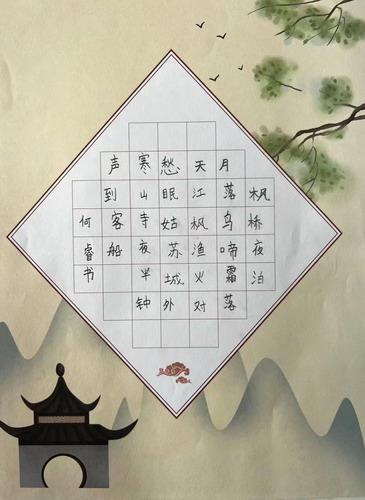 枫桥夜泊
月落乌啼霜落
天江枫渔火对
愁眠姑苏城外
寒山寺夜半钟
声到客船
何睿书